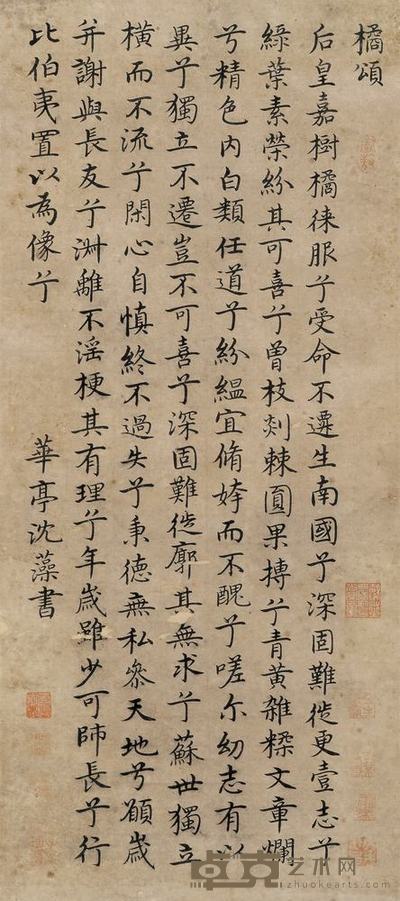 橘頌
后皇嘉樹橘徠服兮受命不遷生南國兮深固難徙更壹志兮
綠葉素榮紛其可喜兮曾枝剡棘圓果摶兮青黃雜糅文章爛
兮精色內白類任道兮紛緼宜脩姱而不醜兮嗟尔幼志有以
異兮獨立不遷豈不可喜兮深固難徙廓其無求兮蘇世獨立
橫而不流兮閑心自慎終不過失兮秉德無私參天地兮願歲
并謝與長友兮淑離不淫梗其有理兮年歲雖少可師長兮行
比伯夷置以為像兮
華亭沈藻書
卓克艺术网
zhuokearts.com